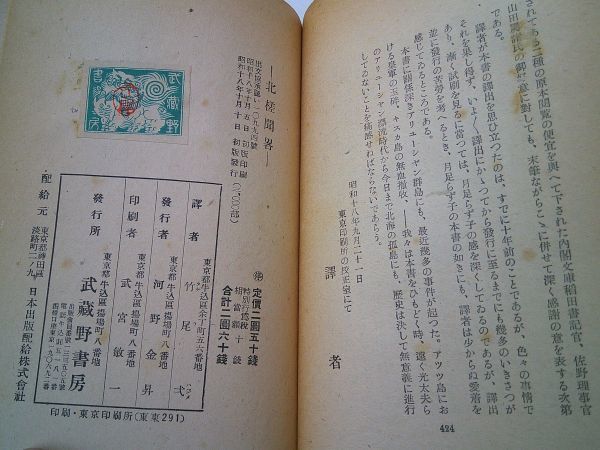 されてある二種の原本閲覧の便宜を與へて下された内閣文庫稲田書記官、佐野理事官
山田 氏の御 意に對しても、末筆ながらこゝに併せて深く感謝の意を表する次第
である。
譯者が本書の譯出を思ひ立つたのは、すでに十年前のことであるが、色々の事情で
それを果し得ず、いよ〳〵譯出にかゝつてから發行に至るまでにも幾多のいきさつが
あり、漸く試刷を見るに當つては、月足らず子の感を深くしてゐるのであるが、譯出
並に發行の苦勞を考へるとき、月足らず子の本書の如きにも、譯者は少からぬ愛着を
感じてゐるところである。
本書に關係深きアリューシャン群島にも、最近幾多の事件が起つた。アッツ島にお
ける皇軍の玉碎。キスカ島の無血撤收。──我々は本書をひもどく時、遠く光太夫ら
のアリューシャン漂流時代から今日まで、北海の孤島にも、歴史は決して無意義に進行
してゐないことを痛感せねばならないであらう。
昭和十八年九月二十一日
東京印刷所の校正室にて
譯者
424
武藏野
書房
―北槎聞略―
出文協承認い一〇九九四號
昭和十八年十月五日 初版印刷
昭和十八年十月十日 初版發行(二,〇〇〇部)
定價二圓五十錢
特別行爲税
相當額十錢
合計二圓六十錢
譯者 東京都牛込區余丁町五六番地
竹尾弌
發行者 東京都牛込區揚場町八番地
河野金昇
印刷者 東京都牛込區揚場町八番地
武宮敏一
發行所 東京都牛込區揚場町八番地
武藏野書房
配給元 東京都神田區淡路町二ノ九 日本出版配給株式會社
印刷・東京印刷所(東東291)